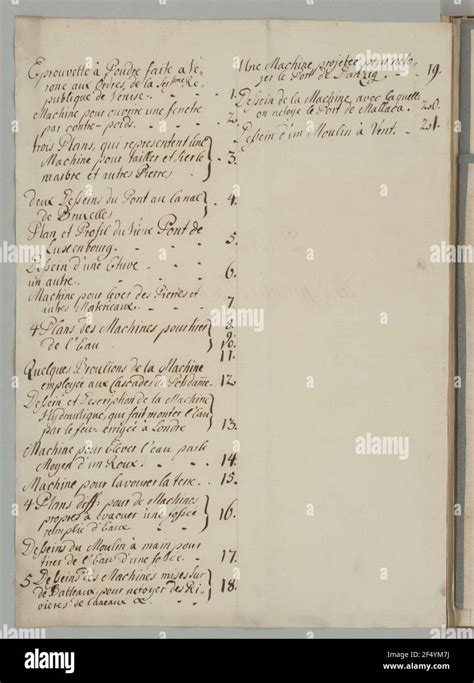 Eprouvette à Poudre faite a Vé-
rone aux Ordres, de la Ser:me Re
publique de Venise. . . 1.
Machine pour ouvrire une fenetre
par contre-poids. . . 2.
trois Plans, qui representent une
Machine pour tailler et scier le
marbre et autres Pierres } 3.
deux Desseins du Pont au Canal
de Bruxelles } 4.
Plan et Profil du Vieux Pont de
Luxembourg. . . 5.
Dessein d'une Etuve . . 6.
un autre. . .
Machine pour lever des Pierres et
autres Materieaux. . . 7
4 Plans des Machines pour tirer
de l'Eau. } 8. 9. 10. 11.
Quelques Brouillons de la Machine
employée aux cascades de Potsdamme. 12
Dessein et Description de la Machine
Hydraulique, qui fait monter l'Eau
par le feu erigée à Londre } 13.
Machine pour Elever l'eau par le
Moyen d'un Roux. . . 14.
Machine pour lavourer la tere. . 15.
4 Plans diff: pour de Machines
propres à evacuer une fossée
remplie d'Eaux } 16.
Desseins du Moulin à main pour
tirer de l'Eau d'une fossée. . 17.
5 Desseins des Machines mises sur
de Batteaux pour netoyer des Ri-
vières de Caneaux &. } 18.
Une Machine projetée pour neto-
yer le Port de Danzig. . . 19.
Dessein de la Machine, avec la quelle
on netoye le Port de Mallaca. . 20.
Dessein d'un Moulin à Vent. . 21.
alamy
Image ID: 2F4YM7J
www.alamy.com